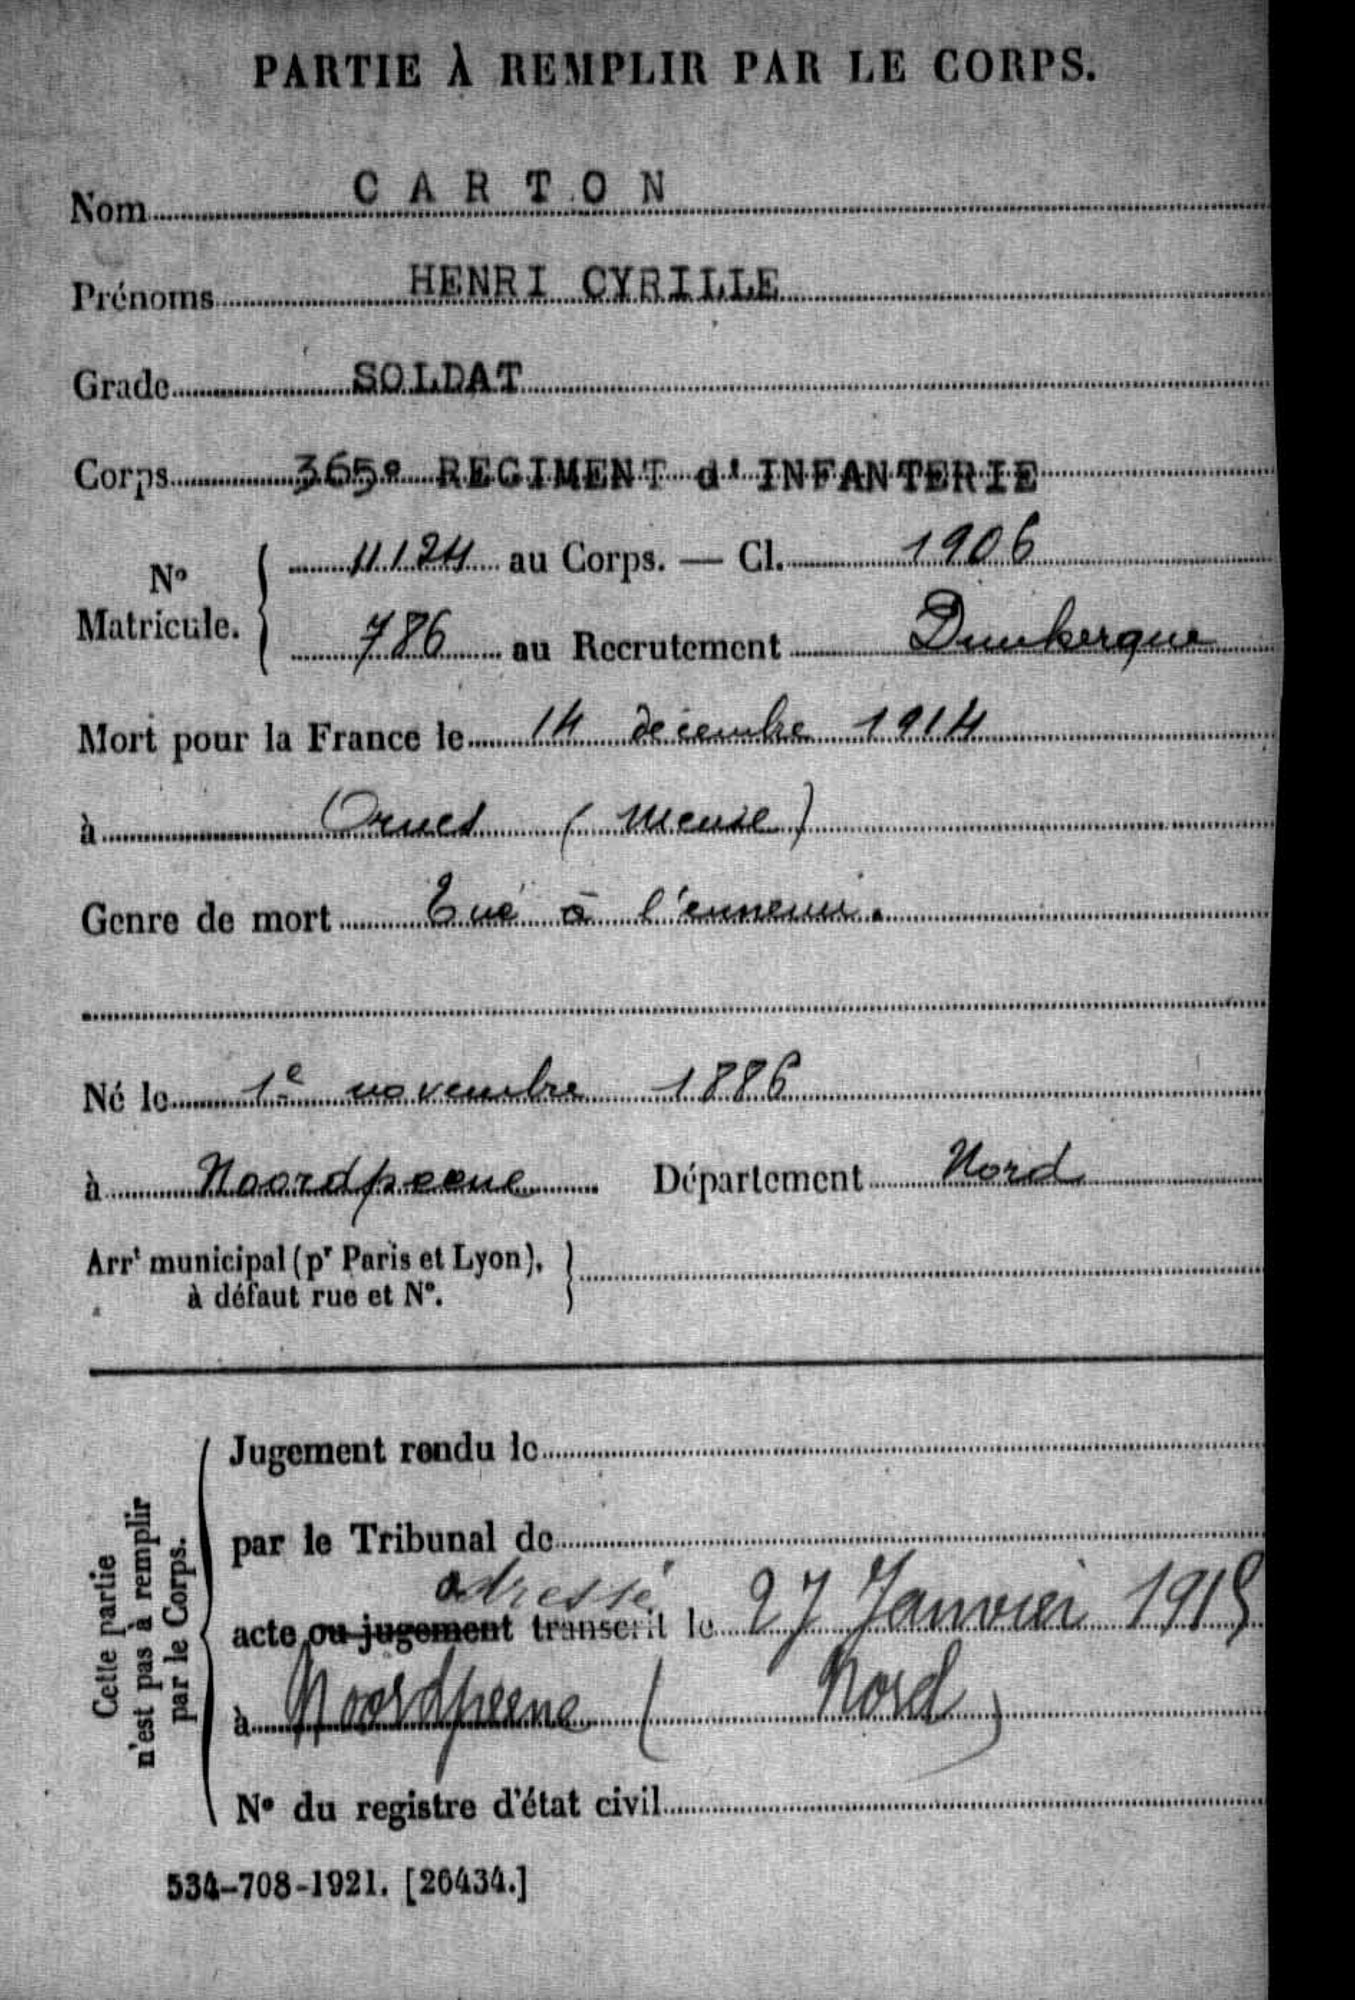 PARTIE À REMPLIR PAR LE CORPS.
Nom CARTON
Prénoms HENRI CYRILLE
Grade SOLDAT
Corps 365e REGIMENT d'INFANTERIE
No Matricule. { 4124 au Corps. — Cl. 1906
786 au Recrutement Dunkerque
Mort pour la France le 14 décembre 1914
à Ornes (Meuse)
Genre de mort Tué à l'ennemi.
Né le 1e novembre 1886
à Noordpeene Département Nord
Arrt municipal (pr Paris et Lyon), }
à défaut rue et No.
Cette partie
n'est pas à remplir
par le Corps.
Jugement rendu le
par le Tribunal de
adressé
acte ou jugement transcrit le 27 Janvier 1915
à Noordpeene (Nord)
No du registre d'état civil
534-708-1921. [26434.]